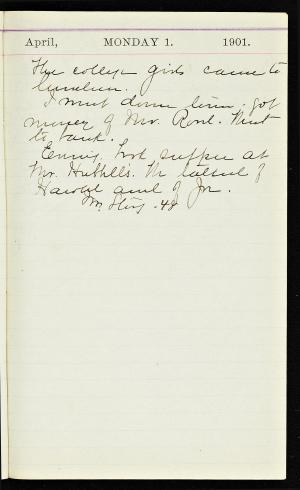 April, MONDAY 1. 1901.
The college girls came to
luncheon.
I went down town. got
money of Mr. Rowl. Went
to bank.
Evening. Took supper at
Mr. Hubbell's. We talked of
Harold and of Jr.